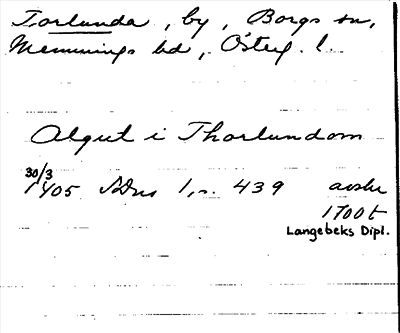 Torlunda, by, Borgs sn,
Memmings hd, Österg. l.
Algut i Thorlundom
30/3
1405 SDns 1, n. 439 avskr
1700 t
Langebeks Dipl.